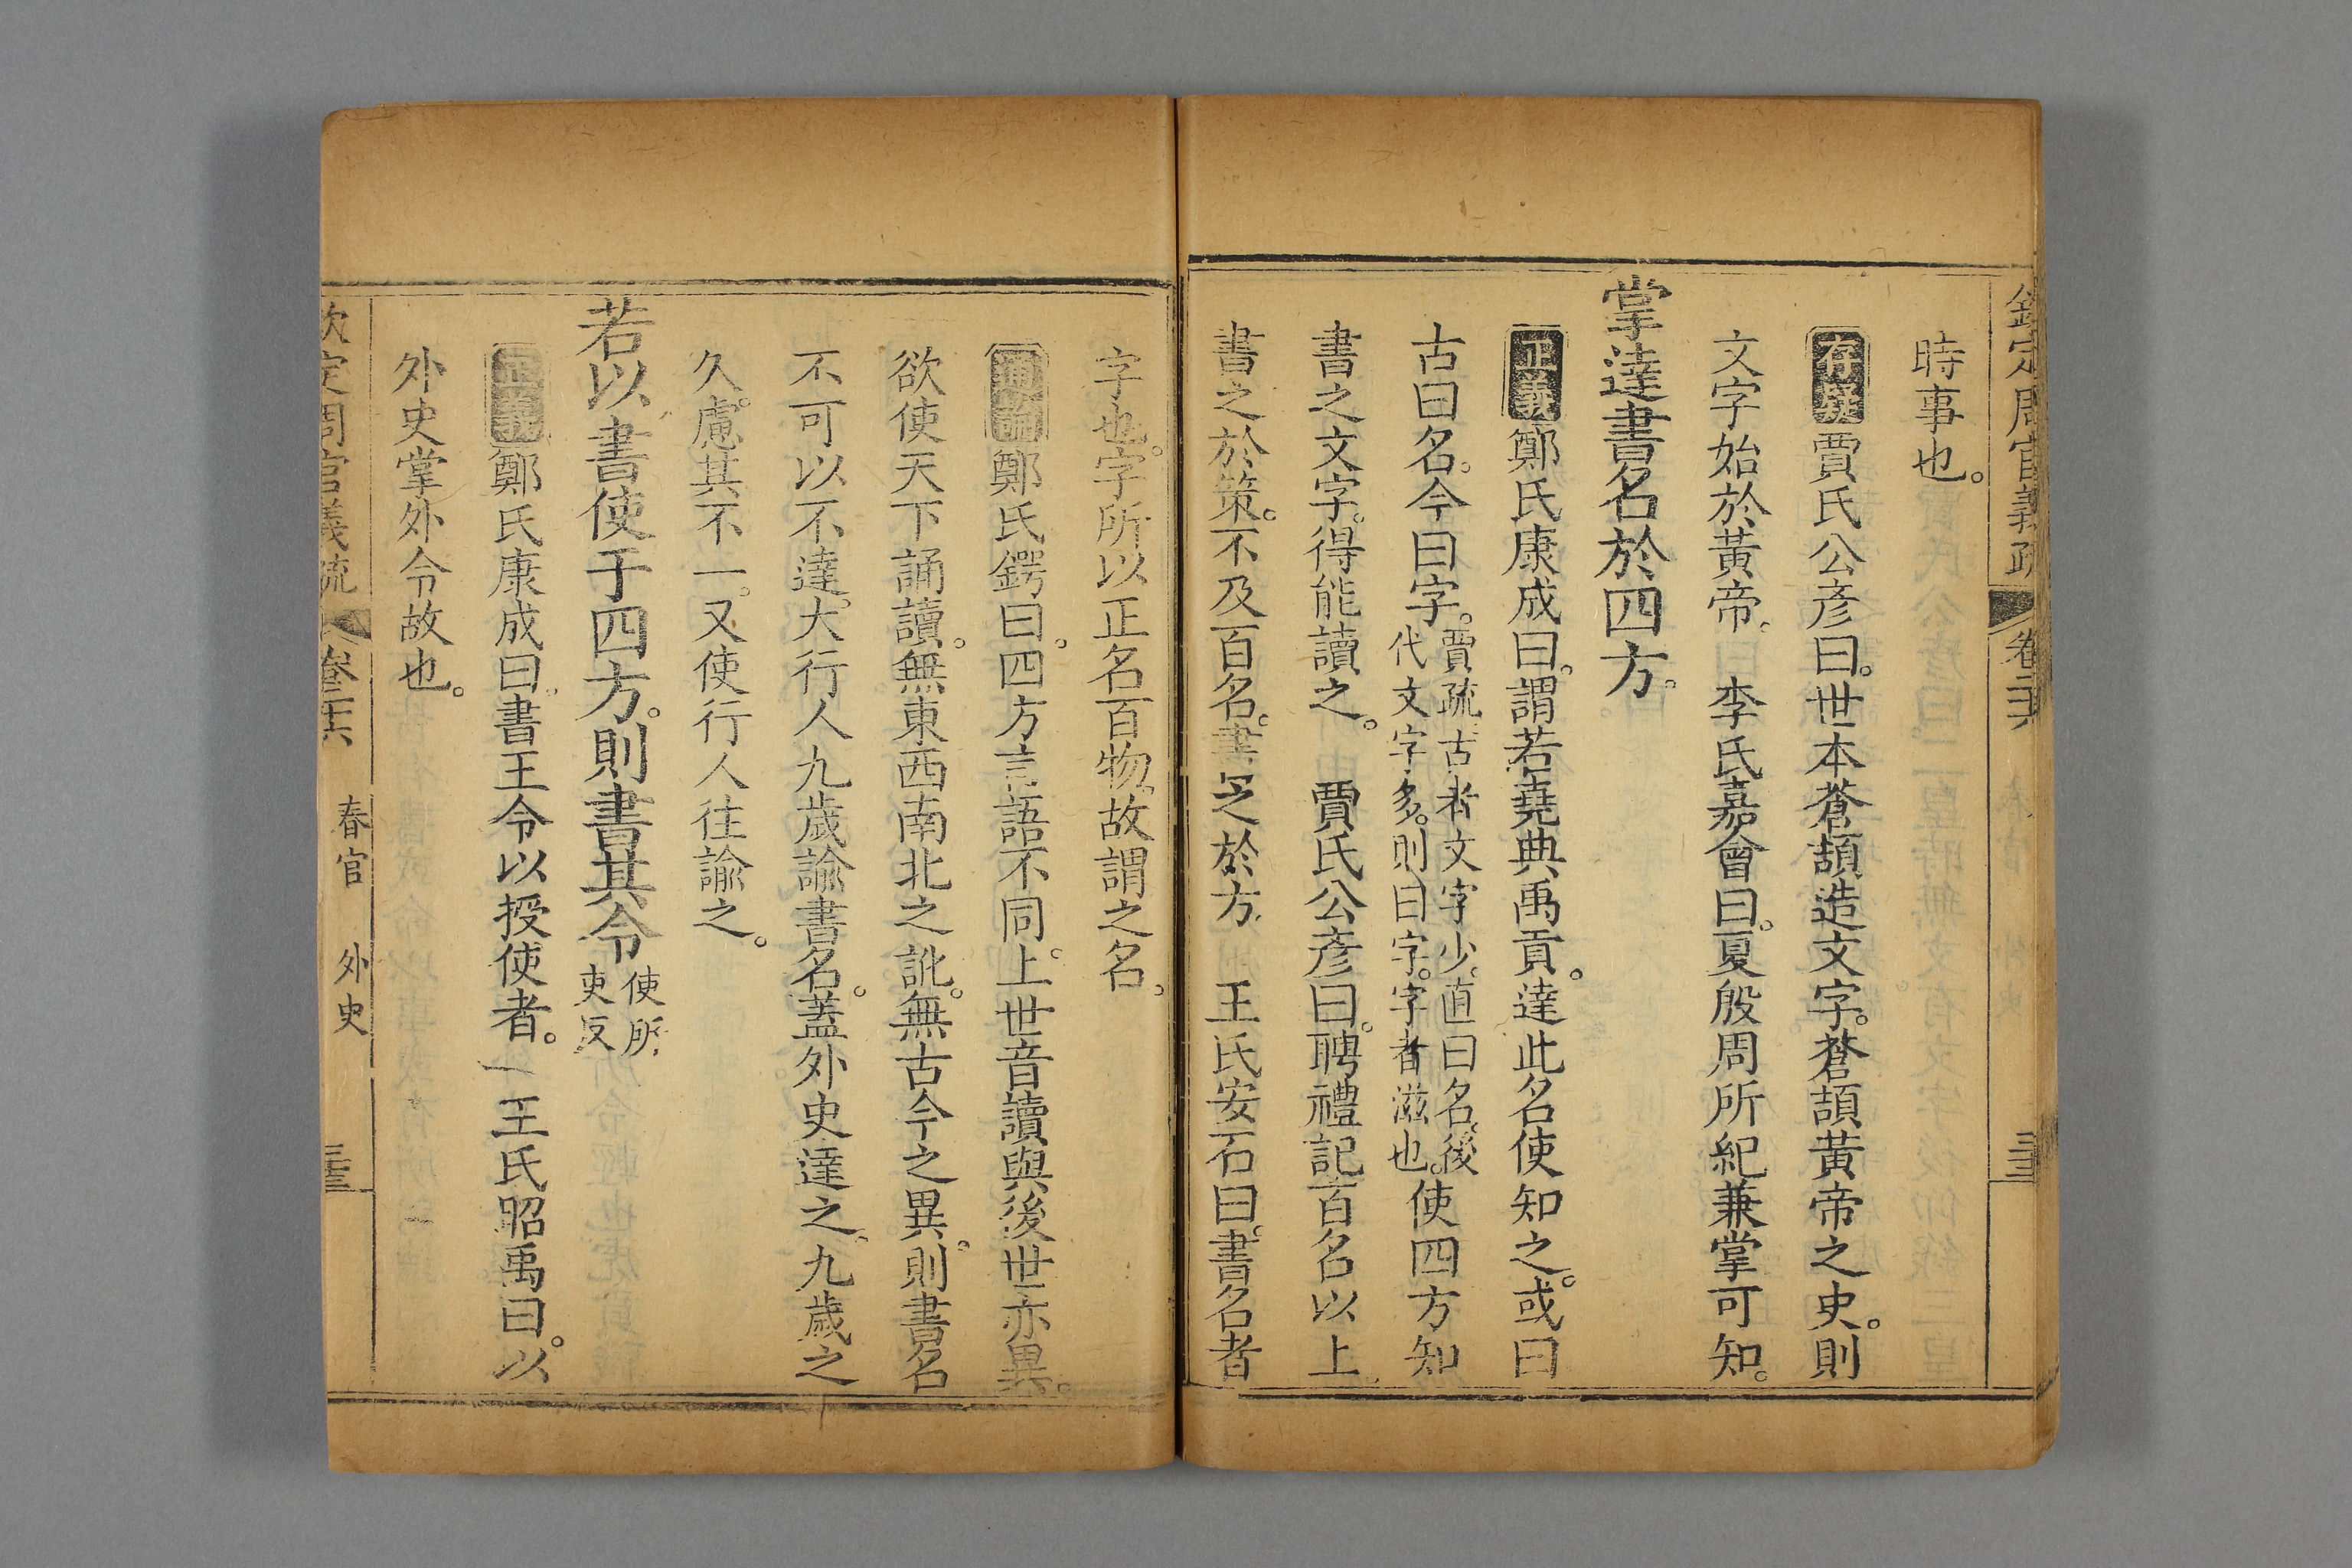 欽定周官義疏 卷二十六
時事也。
存疑賈氏公彥曰。世本蒼頡造文字。蒼頡黃帝之史。則
文字始於黃帝、李氏嘉會曰。夏殷周所紀兼掌可知。
掌達書名於四方。
正義鄭氏康成曰。謂若堯典禹貢。達此名使知之。或曰
古曰名。今曰字。賈疏、古者文字少。直曰名。後代文字多。則曰字。字者滋也。使四方知
書之文字。得能讀之。 賈氏公彥曰。聘禮記百名以上
書之於策。不及百名。書之於方、王氏安石曰。書名者
字也。字所以正名百物。故謂之名。
通論鄭氏鍔曰。四方言語不同。上世音讀與後世亦異。
欲使天下誦讀。無東西南北之訛。無古今之異。則書名
不可以不達。大行人九歲諭書名。蓋外史達之。九歲之
久。慮其不一。又使行人往諭之。
若以書使于四方。則書其令使所吏反
正義鄭氏康成曰。書王令以授使者。 王氏昭禹曰。以
外史掌外令故也。
欽定周官義疏 卷二十六 春官 外史